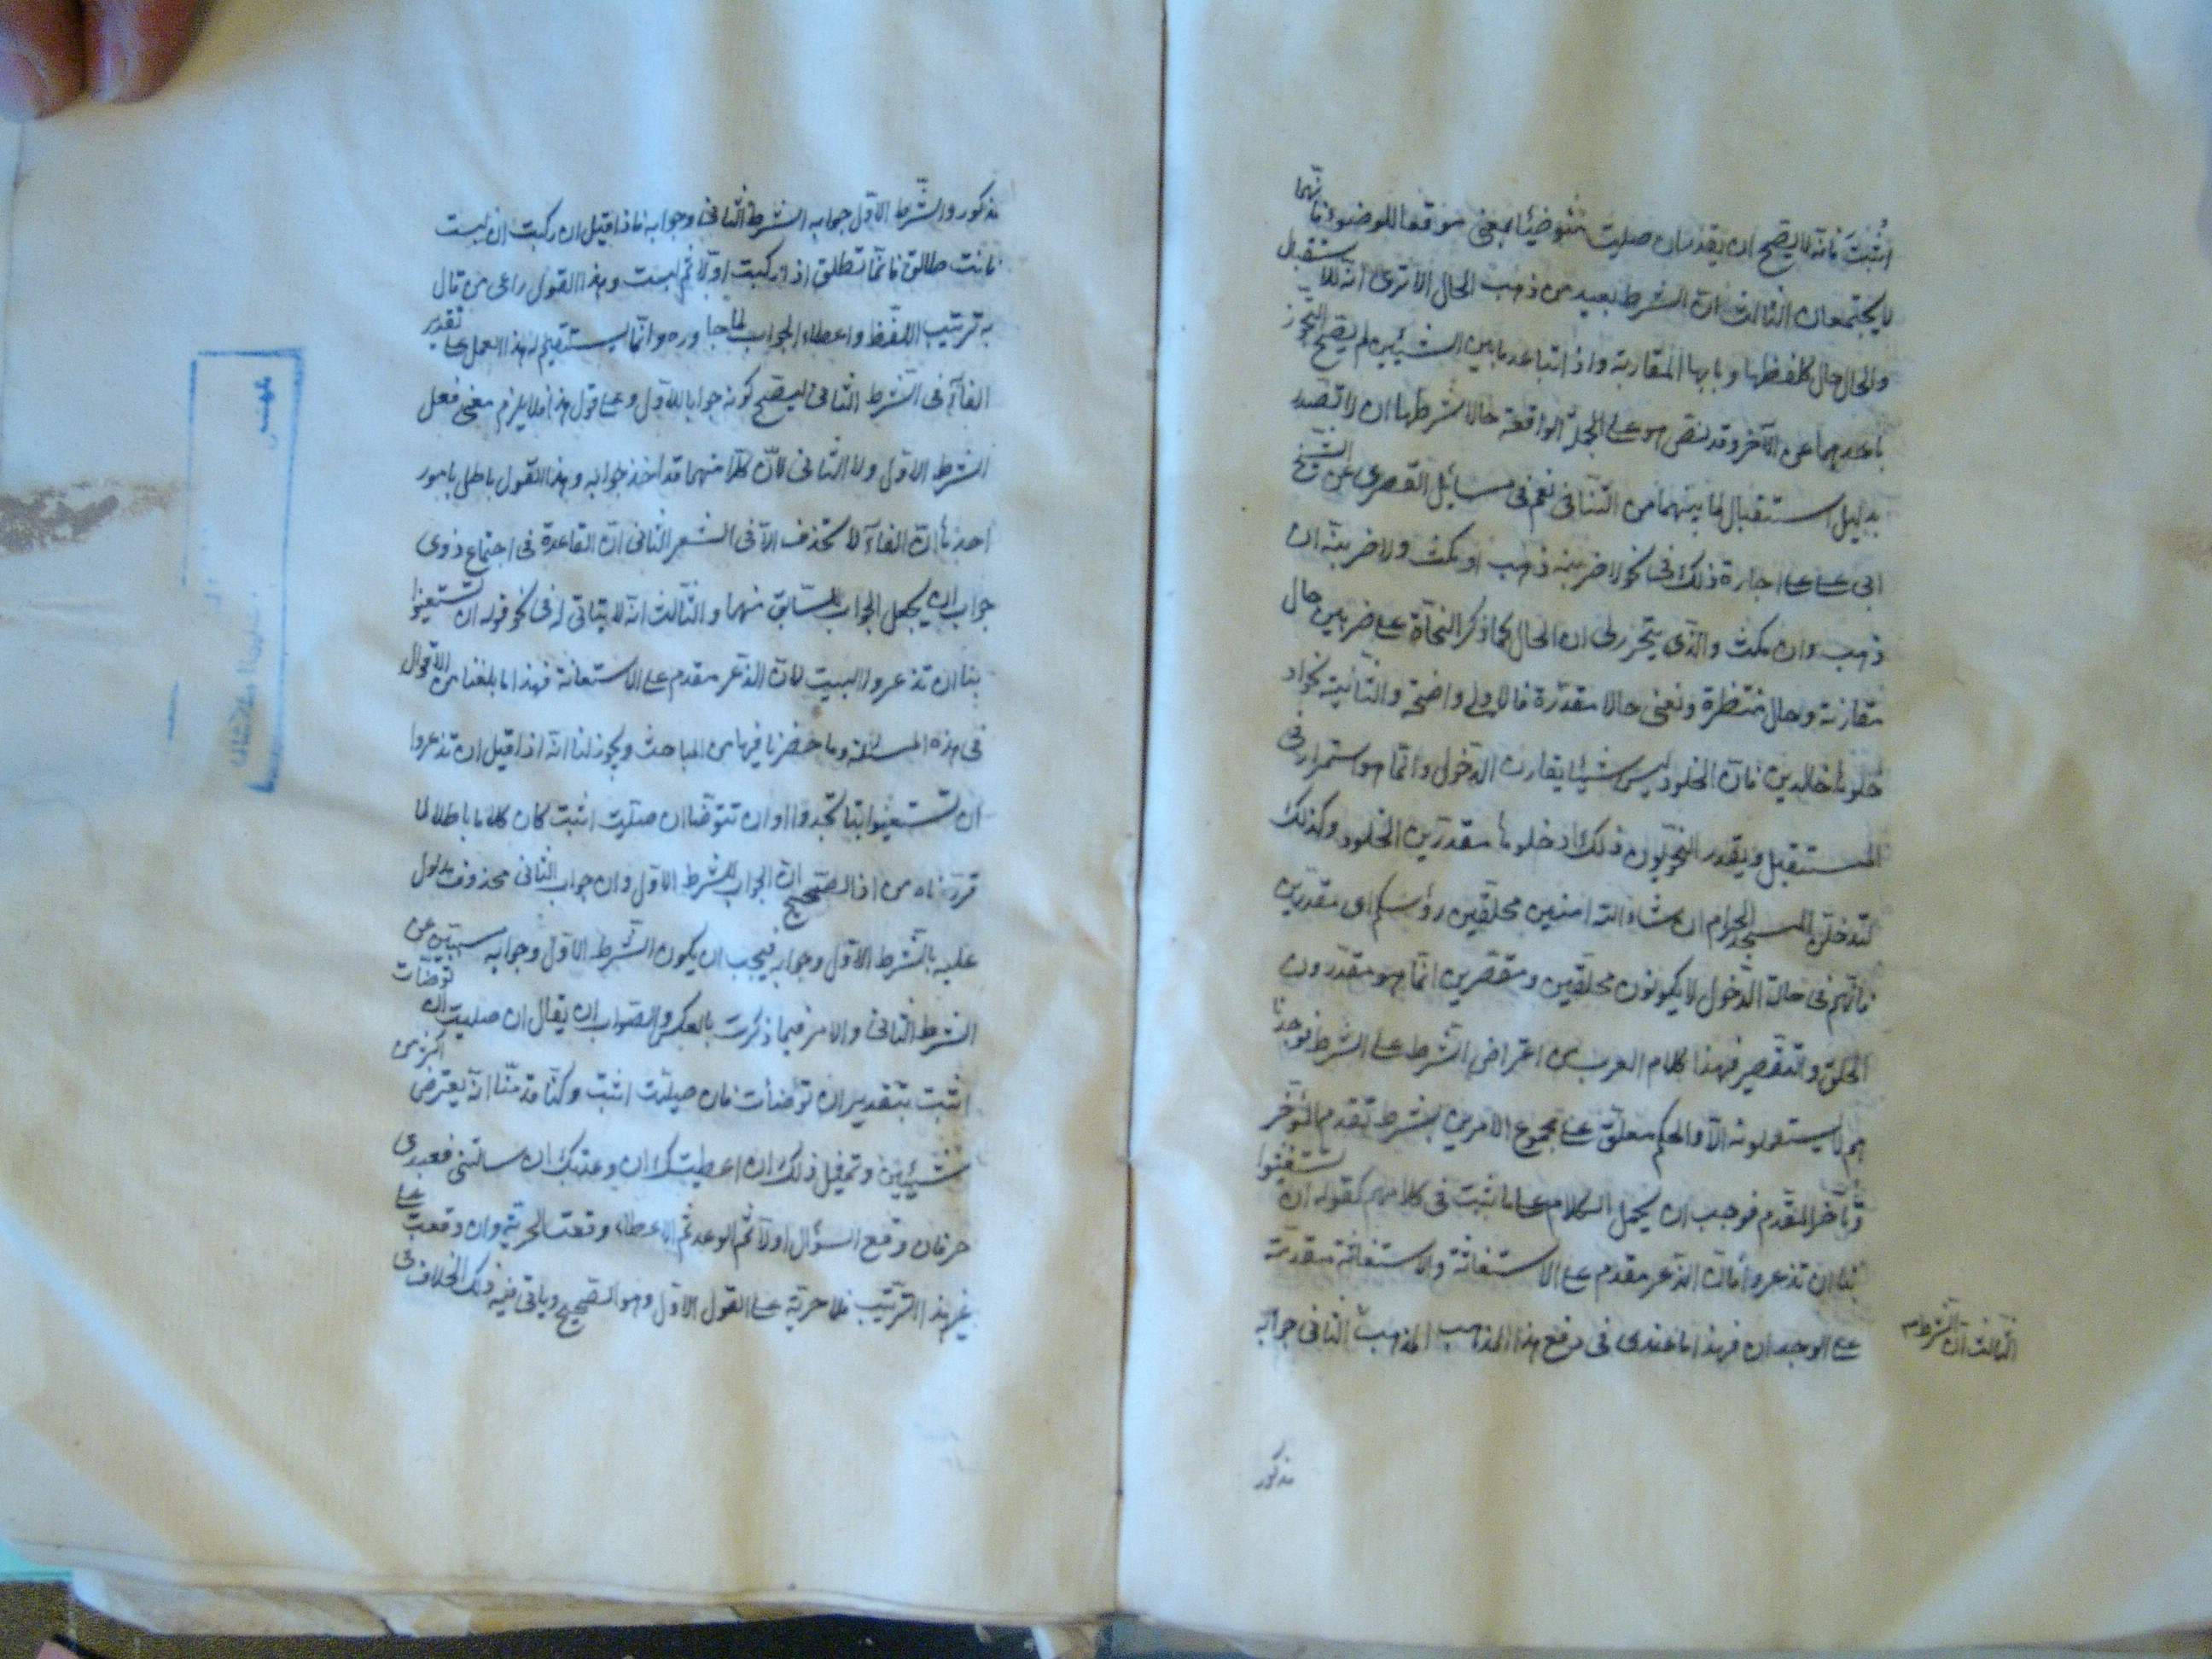 اثبت فانه لا يصح ان يقدر ان صليت متوضيئا بمعنى موقعا للوضوء فانهما
لا يجتمعان الثالث ان الشرط بعيد من ذهب الحال الا ترى انه للاستقبال
والحال حال كلفظها وبابها المقاربة واذا تباعد ما بين الشيئين لم يصح التجوز
باحدهما عن الآخر وقد نص هو على الجملة الواقعة حالا شرطها ان لا تصدر
بدليل استقبال لما بينهما من التنافي نعم في مسائل القصرى عن الشيخ
ابي على على اجازة ذلك في نحو لاضربنه ذهب او مكث ولاضربنه ان
ذهب وان مكث والذي يتحرر لي ان الحال كما ذكر النحاة على ضربين حال
مقارنة وحال منتظرة وتعنى حالا مقدرة فالاولى واضحة والثانية نحو اد
خلوها خالدين فان الخلود ليس شيئا يقارن الدخول وانما هو استمرار في
المستقبل ويقدر النحويون ذلك ادخلوها مقدرين الخلود وكذلك
لتدخلن المسجد الحرام ان شاء الله امنين محلقين رؤسكم اى مقدرين
فانهم في حالة الدخول لا يكونون محلقين ومقصرين انما هو مقدرون
الحلق والتقصير فهذا كلام العرب من اعتراض الشرط على الشرط فوجدنا
هم لا يستعملونه الا والحكم معلق على مجموع الامرين بشرط تقدم المؤخر
وتأخر المقدم فوجب ان يحمل الكلام على ما ثبت في كلامهم كقوله ان تستغيثوا
بنا ان تذعروا فان الذعر مقدم على الاستغاثة والاستغاثة مقدمة
على الوجدان فهذا ما عندى في دفع هذا المذهب المذهب الثاني جوابه
الثالث ان الشرط
مذكور
مذكور والشرط الاول جوابه الشرط الثاني وجوابه فاذا قيل ان ركبت ان لبست
فانت طالق فانما تطلق اذا ركبت اولا ثم لبست وهذا القول راعى من قال
به ترتيب اللفظ واعطاء الجواب لما جاوره وانما يستقيم له هذا العمل على تقدير
الفاء في الشرط الثاني ليصح كونه جوابا للاول وعلى قول هذا فلا يلزم مضى فعل
الشرط الاول ولا الثاني لان كلا منهما قد اخذ جوابه وهذا القول باطل بامور
احدها ان الفاء لا تحذف الا في الشعر الثاني ان القاعدة في اجتماع ذوى
جواب ان يجعل الجواب للسابق منهما والثالث انه لا يتاتى له في نحو قوله ان تستغيثوا
بنا ان تذعروا البيت لان الذعر مقدم على الاستغاثة فهذا ما بلغنا من الاقوال
في هذه المسئلة وما حضرنا فيها من المباحث ويجوز لنا انه اذا قيل ان تذعروا
ان تستغيثوا بنا تجدوا او ان تتوضا ان صليت اثبت كان كلاما باطلا لما
قررناه من اذ الصحيح ان الجواب للشرط الاول وان جواب الثاني محذوف مدلول
عليه بالشرط الاول وجوابه فيجب ان يكون الشرط الاول وجوابه سببين عن
الشرط الثاني والامر فيما ذكرت بالعكس والصواب ان يقال ان صليت ان توضأت
اثبت بتقدير ان توضأت فان صليت اثبت وكنا قدمنا انه يعترض اكثر من
شيئين وتمثيل ذلك ان اعطيتك ان وعدتك ان سالتنى فعبدى
حر فان وقع السؤال اولا ثم الوعد ثم الاعطاء وقعت الحرية وان وقعت على
غير هذا الترتيب فلا حرية على القول الاول وهو الصحيح وياتي فيه ذلك الخلاف في